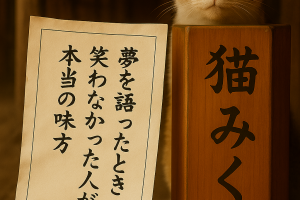 夢を語ったとき
笑わなかった人が
本当の味方
猫みく